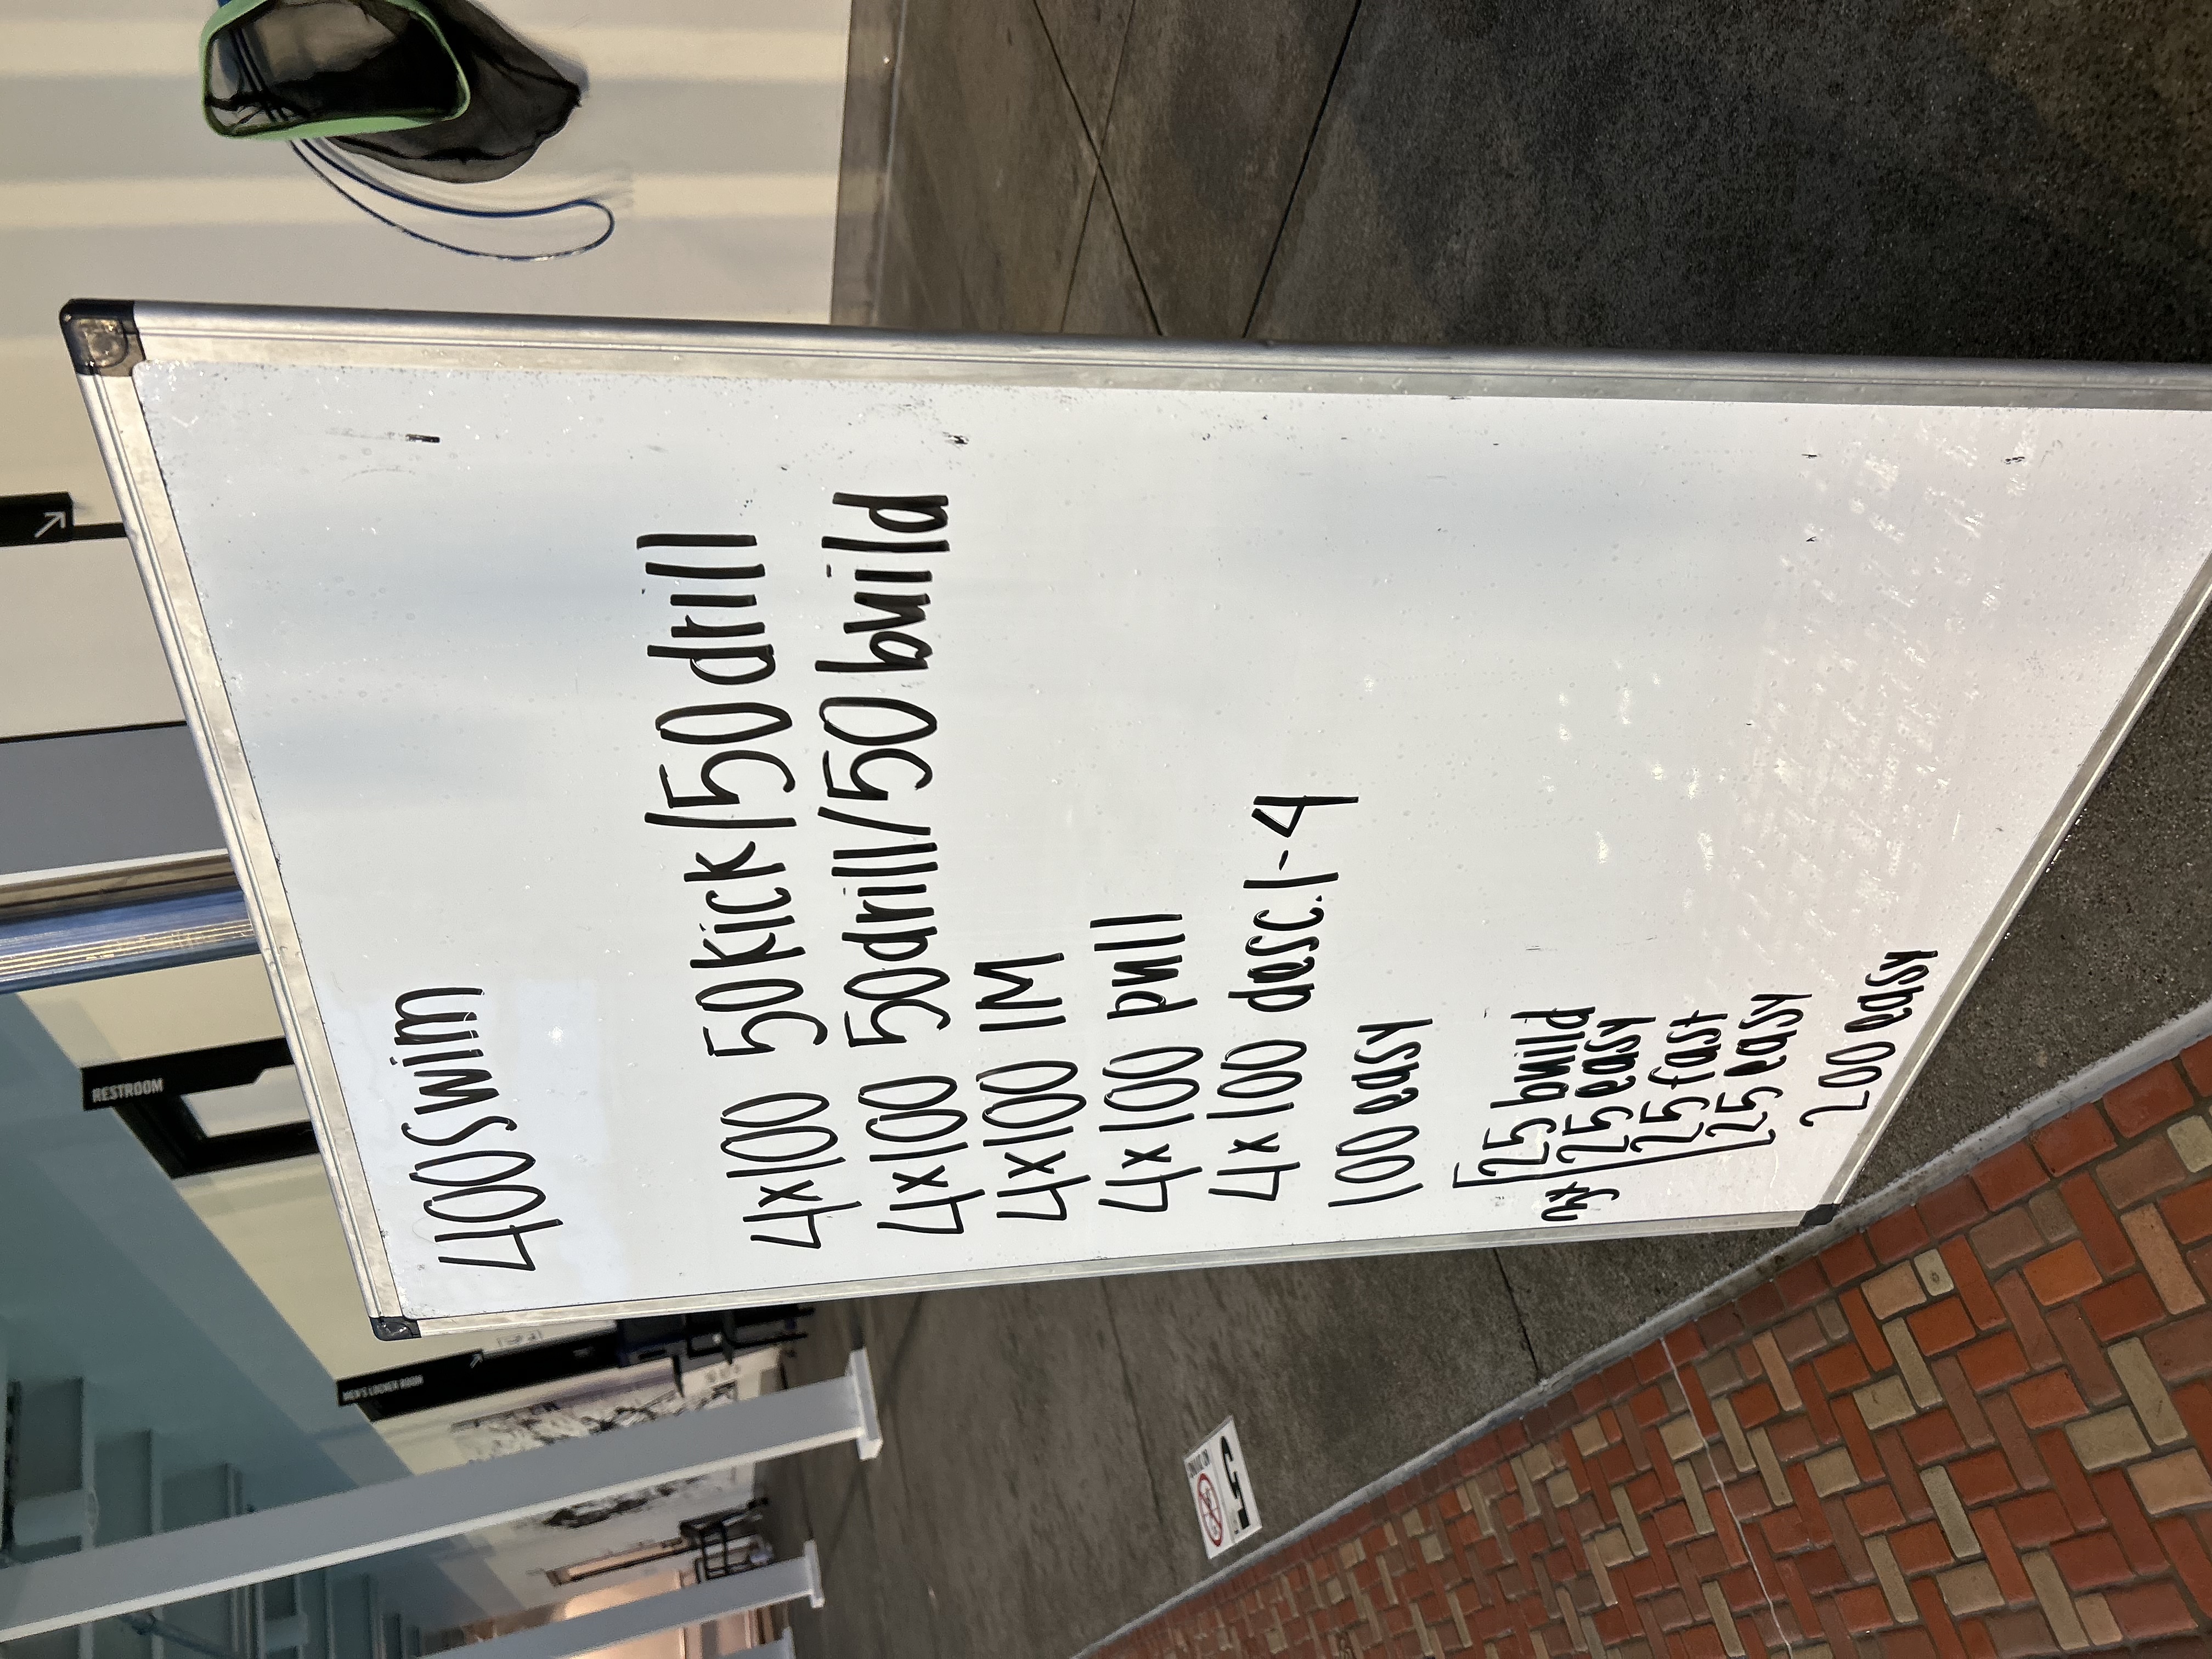 400 swim
4x100 50 kick/50 drill
4x100 50 drill/50 build
4x100 IM
4x100 pull
4x100 desc.1-4
100 easy
25 build
25 easy
25 fast
25 easy
200 easy
RESTROOM
MEN'S LOCKER ROOM